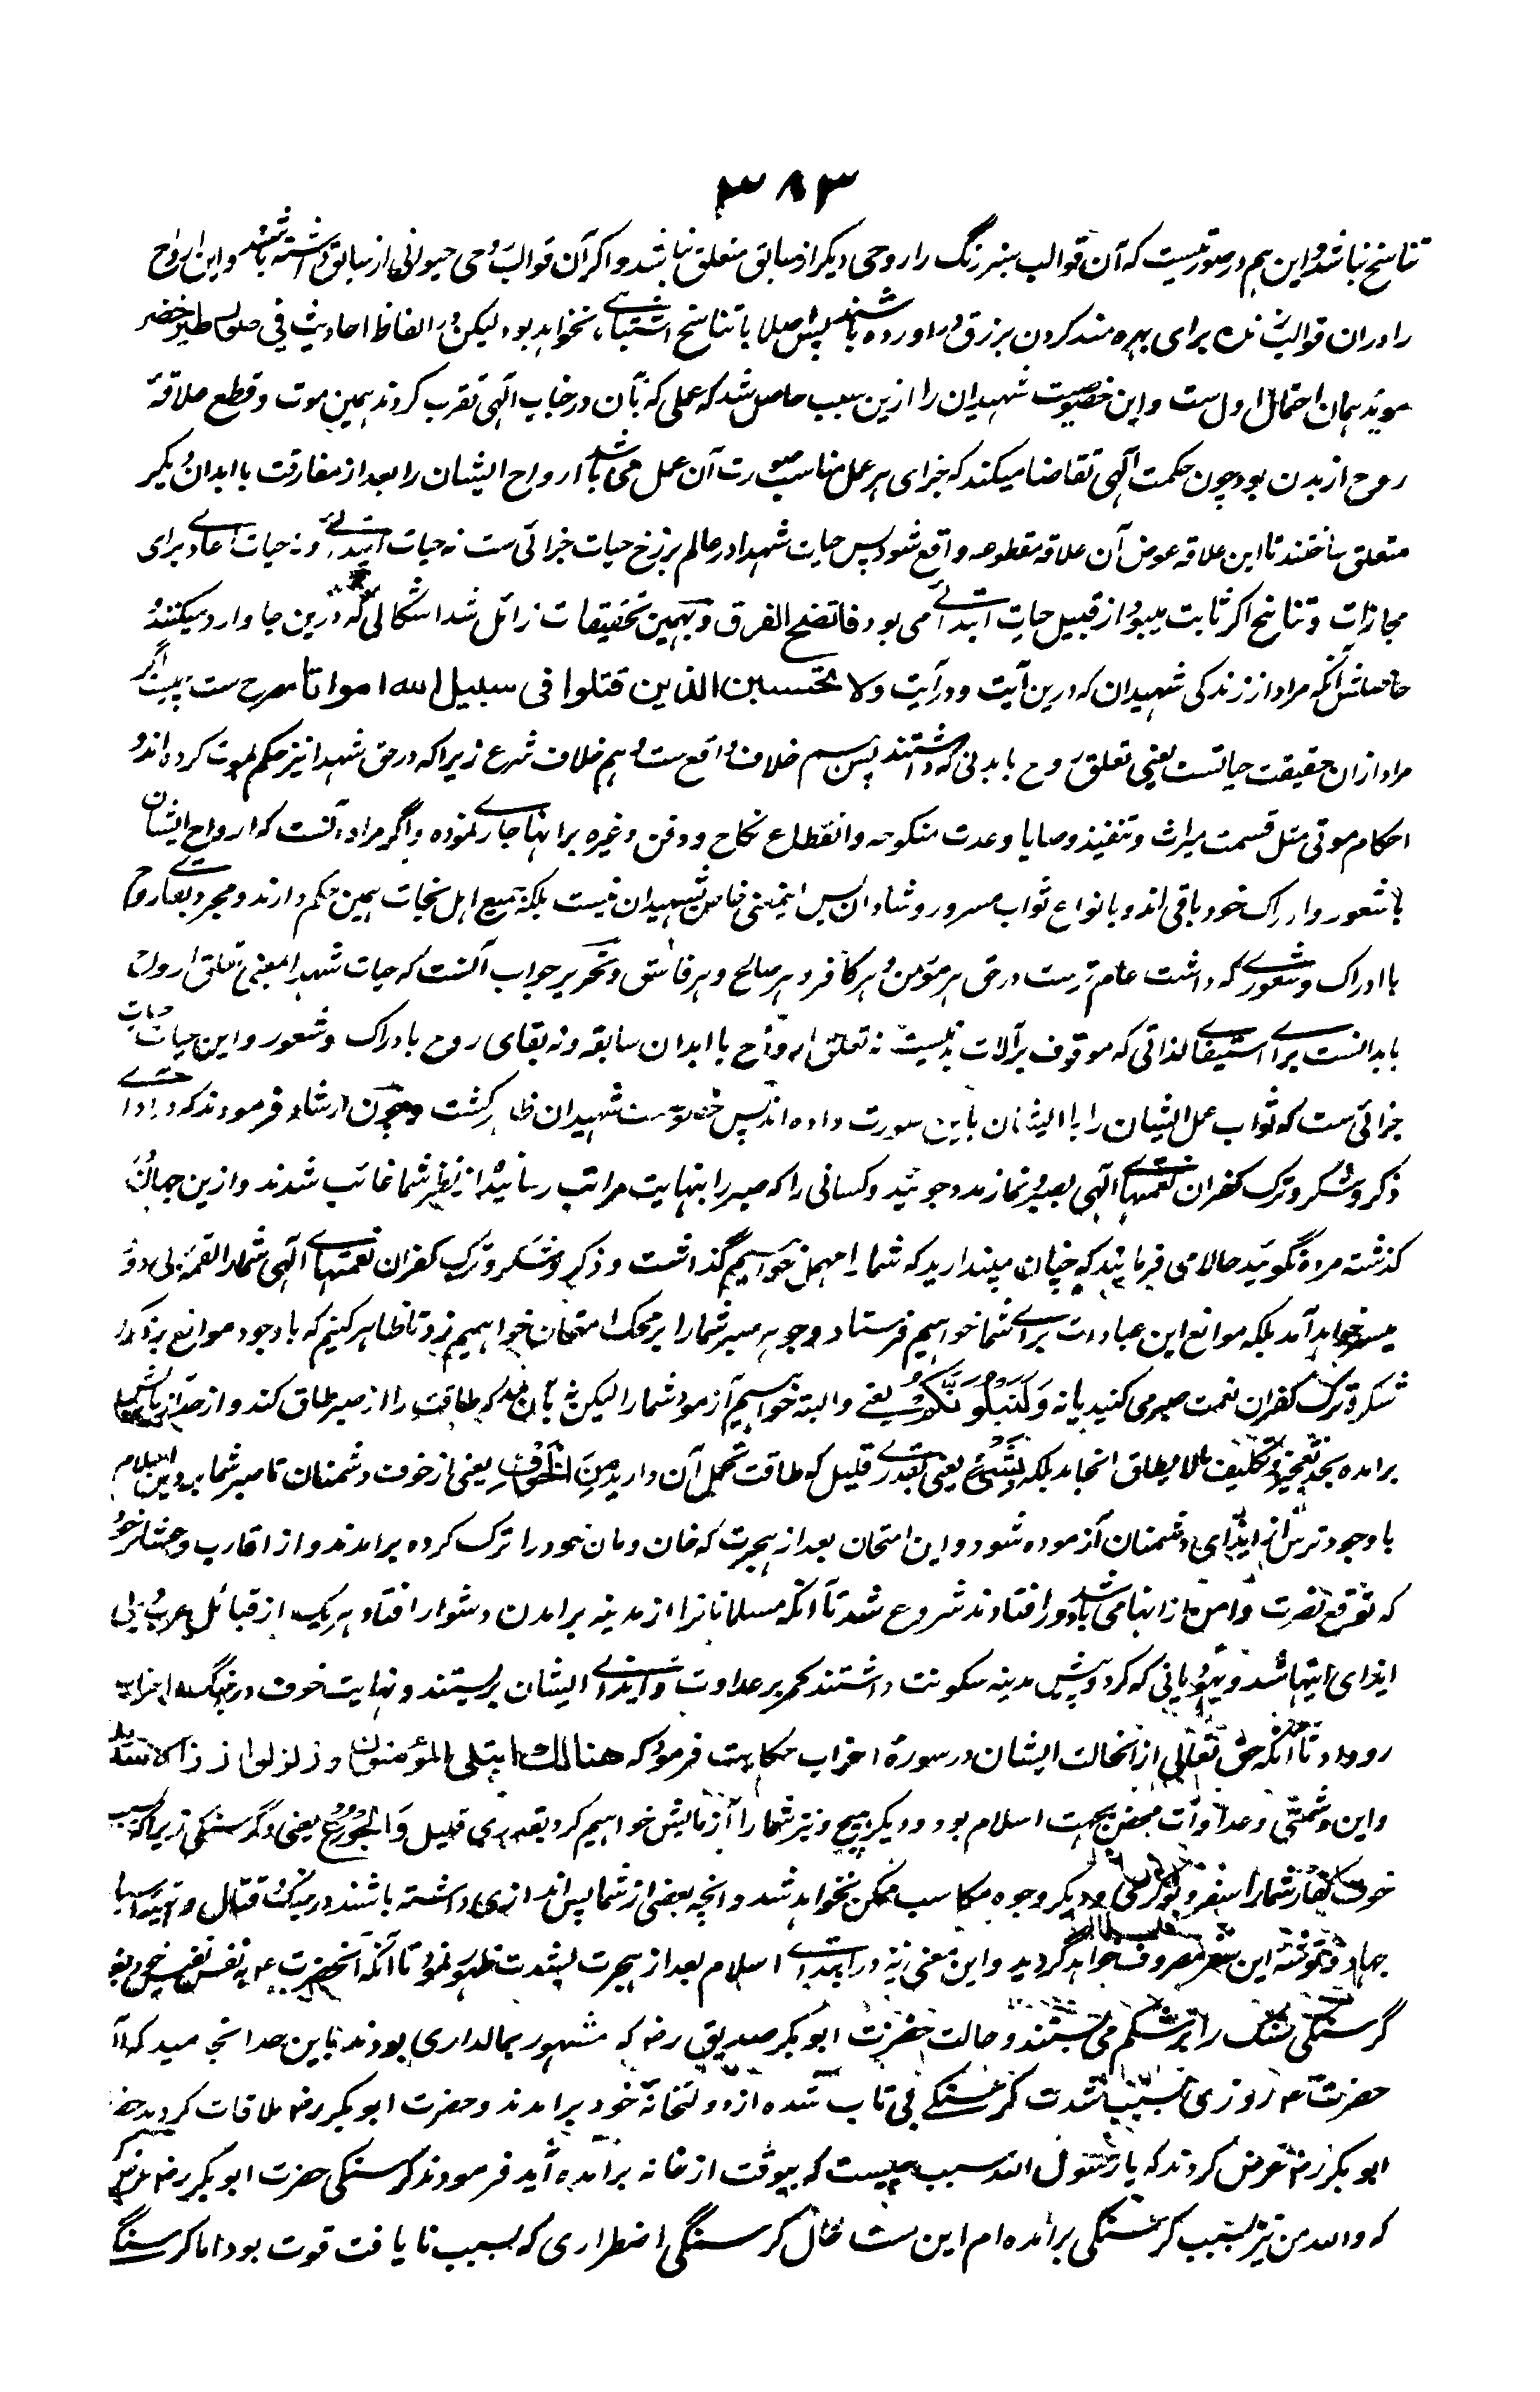 ٣٨٣
تناسخ نباشد و این هم در صورتیست که آن قوالب سبز رنگ را روحی دیگر از سابق متعلق نباشد و اگر آن قوالب روحی حیوانی از سابق داشته باشند و این ارواح
را در آن قوالب برای بهره مند کردن برزق در آورده باشند پس اصلا با تناسخ اشتباهی نخواهد بود لیکن در الفاظ احادیث فی حواصل طیر خضر
موید همان احتمال اول ست و این خصوصیت شهیدان را ازین سبب حاصل شد که عملی که بآن در جناب الهی تقرب کردند همین موت و قطع علاقهٔ
روح از بدن بود چون حکمت الهی تقاضا میکند که جزای هر عمل مناسب صورت آن عمل می باشد ارواح ایشان را بعد از مفارقت با ابدان دیگر
متعلق ساختند تا این علاقه عوض آن علاقه مقطوعه واقع شود پس حیات شهدا در عالم برزخ حیات جزائی ست نه حیات ابتدائے و نه حیات اعادے برای
مجازات و تناسخ اگر ثابت میبود از قبیل حیات ابتدائے می بود فاتضح الفرق و بهمین تحقیقات زائل شد اشکالی که درین جا وارد میکنند و
حاصلش آنکه مراد از زندگی شهیدان که درین آیت و در آیت ولا تحسبن الذین قتلوا فی سبیل الله امواتا مصرح ست چیست اگر
مراد ازان حقیقت حیاتست یعنی تعلق روح با بدنی که داشتند پس هم خلاف واقع ست و هم خلاف شرع زیرا که در حق شهدا نیز حکم بموت کرده اند و
احکام موتی مثل قسمت میراث و تنفیذ وصایا و عدت منکوحه و انقطاع نکاح و دفن و غیره بر آنها جاری نموده و اگر مراد آنست که ارواح ایشان
با شعور و ادراک خود باقی اند و بانواع ثواب مسرور و شادان پس اینمعنی خاص بشهیدان نیست بلکه جمیع اهل نجات همین حکم دارند و مجرد بقاے روح
با ادراک و شعورے که داشت عام ترست در حق هر مؤمن و هر کافر و هر صالح و هر فاسق و تحریر جواب آنست که حیات شهدا بمعنی تعلق ارواح
بابدانست براے استیفاے لذاتی که موقوف بر آلات بدنیست نه تعلق ارواح با ابدان سابقه و نه بقای روح با ادراک و شعور و این حیات حیات
جزائی ست که ثواب عمل ایشان را با ایشان باین صورت داده اند پس خصوصیت شهیدان ظاهر گشت و چون ارشاد فرمودند که در اداے
ذکر و شکر و ترک کفران نعمتهاے الهی بصبر و نماز مدد جوئید و کسانی را که صبر را بنهایت مراتب رسانیده از نظر شما غائب شدند و ازین جهان
گذشته مرده نگوئید حالا می فرمایند که چنان مپندارید که شما را مهمل خواهیم گذاشت و ذکر و شکر و ترک کفران نعمتهاے الهی شمارا لقمهٔ بی دود
میسر خواهد آمد بلکه موانع این عبادات براے شما خواهیم فرستاد و جوهر صبر شما را بر محک امتحان خواهیم زد تا ظاهر کنیم که با وجود موانع بر ذکر و
شکر و ترک کفران نعمت صبر می کنید یا نه وَلَنَبْلُوَنَّكُمْ یعنے و البته خواهیم آزمود شما را لیکن نه بآن حد که طاقت را از صبر طاق کند و از حد آزمایش
برآمده بحد تعجیز و تکلیف مالا یطاق انجامد بلکه بِشَيْءٍ یعنی بقدرے قلیل که طاقت تحمل آن دارید مِنَ الْخَوْفِ یعنی از خوف دشمنان تا صبر شما بر دین اسلام
با وجود ترس از ایذای دشمنان آزموده شود و این امتحان بعد از هجرت که خان و مان خود را ترک کرده برآمدند و از اقارب و عشائر خود
که توقع نصرت و امن از آنها می باشد دور افتادند شروع شد تا آنکه مسلمانانرا از مدینه برآمدن دشوار افتاد هر یک از قبائل عرب پی
ایذای اینها شد و یهودیانی که گرد و پیش مدینه سکونت داشتند کمر بر عداوت و ایذاے ایشان بربستند و نهایت خوف در جنگ احزاب
روداد تا آنکه حق تعالی ازانحالت ایشان در سورهٔ احزاب حکایت فرمود که هنالك ابتلی المؤمنون وزلزلوا زلزالا شدیدا
و این دشمنی و عداوت محض بجهت اسلام بود و دیگر هیچ و نیز شما را آزمایش خواهیم کرد بقدری قلیل وَالْجُوْعِ یعنی و گرسنگی زیرا که بسبب
خوف کفار شما را سفر و نوکری و دیگر وجوه مکاسب ممکن نخواهد شد و انچه بعضی از شما پس اندازی داشته باشند در جنگ و قتال و تهیهٔ اسباب
جهاد و توشهٔ این سفر مصروف خواهد گردید و این معنی نیز در ابتداے اسلام بعد از هجرت بشدت ظهور نمود تا آنکه آنحضرت ؐ به نفس نفیس خود
گرسنگی سنگ را بر شکم می بستند و حالت حضرت ابو بکر صدیق رضـ که مشهور بمالداری بودند باین حد انجامید که آن
حضرت ؐ روزی بسبب شدت گرسنگے بی تاب شده از دولتخانهٔ خود برآمدند و حضرت ابو بکر رضـ ملاقات کردند
ابو بکر رضـ عرض کردند که یا رسول الله سبب چیست که بیوقت از خانه برآمده آید فرمودند گرسنگی حضرت ابو بکر رضـ
که والله من نیز بسبب گرسنگی برآمده ام این ست حال گرسنگی اضطراری که بسبب نا یافت قوت بود اما گرسنگی